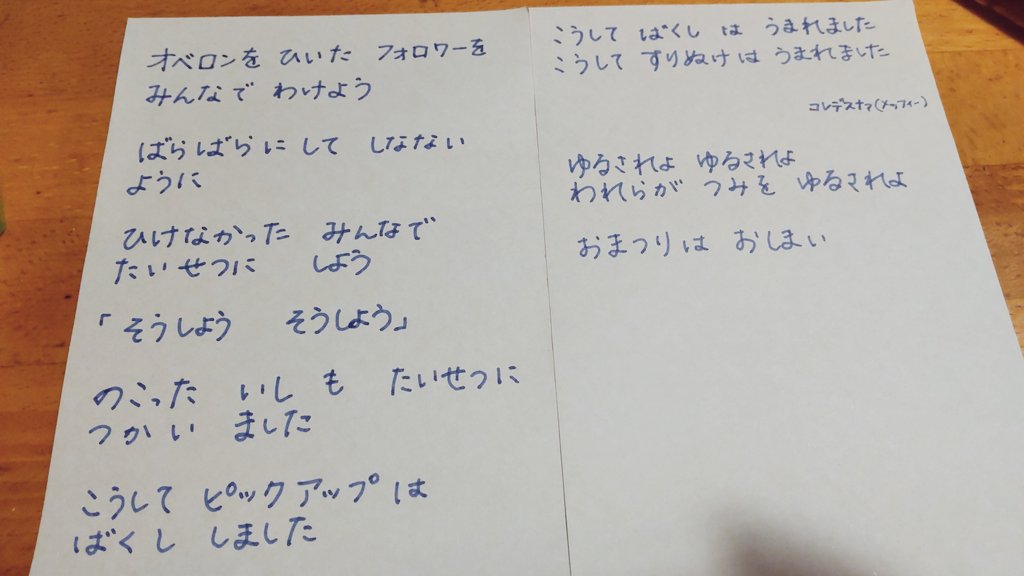 オベロンを ひいた フォロワーを
みんなで わけよう
ばらばらにして しなない
ように
ひけなかった みんなで
たいせつに しよう
「そうしよう そうしよう」
のこった いし も たいせつに
つかい ました
こうして ピックアップは
ばくし しました
こうして ばくし は うまれました
こうして すりぬけは うまれました
コレデスナァ(メッフィー)
ゆるされよ ゆるされよ
われらが つみを ゆるされよ
おまつりは おしまい